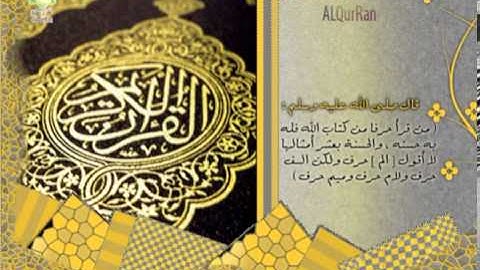 ALQurRan
القرآن الكريم
قال صلى الله عليه وسلم :
( من قرأ حرفا من كتاب الله فله
به حسنة ، والحسنة بعشر أمثالها
لا أقول [ الم ] حرف ولكن الف
حرف ولام حرف وميم حرف )